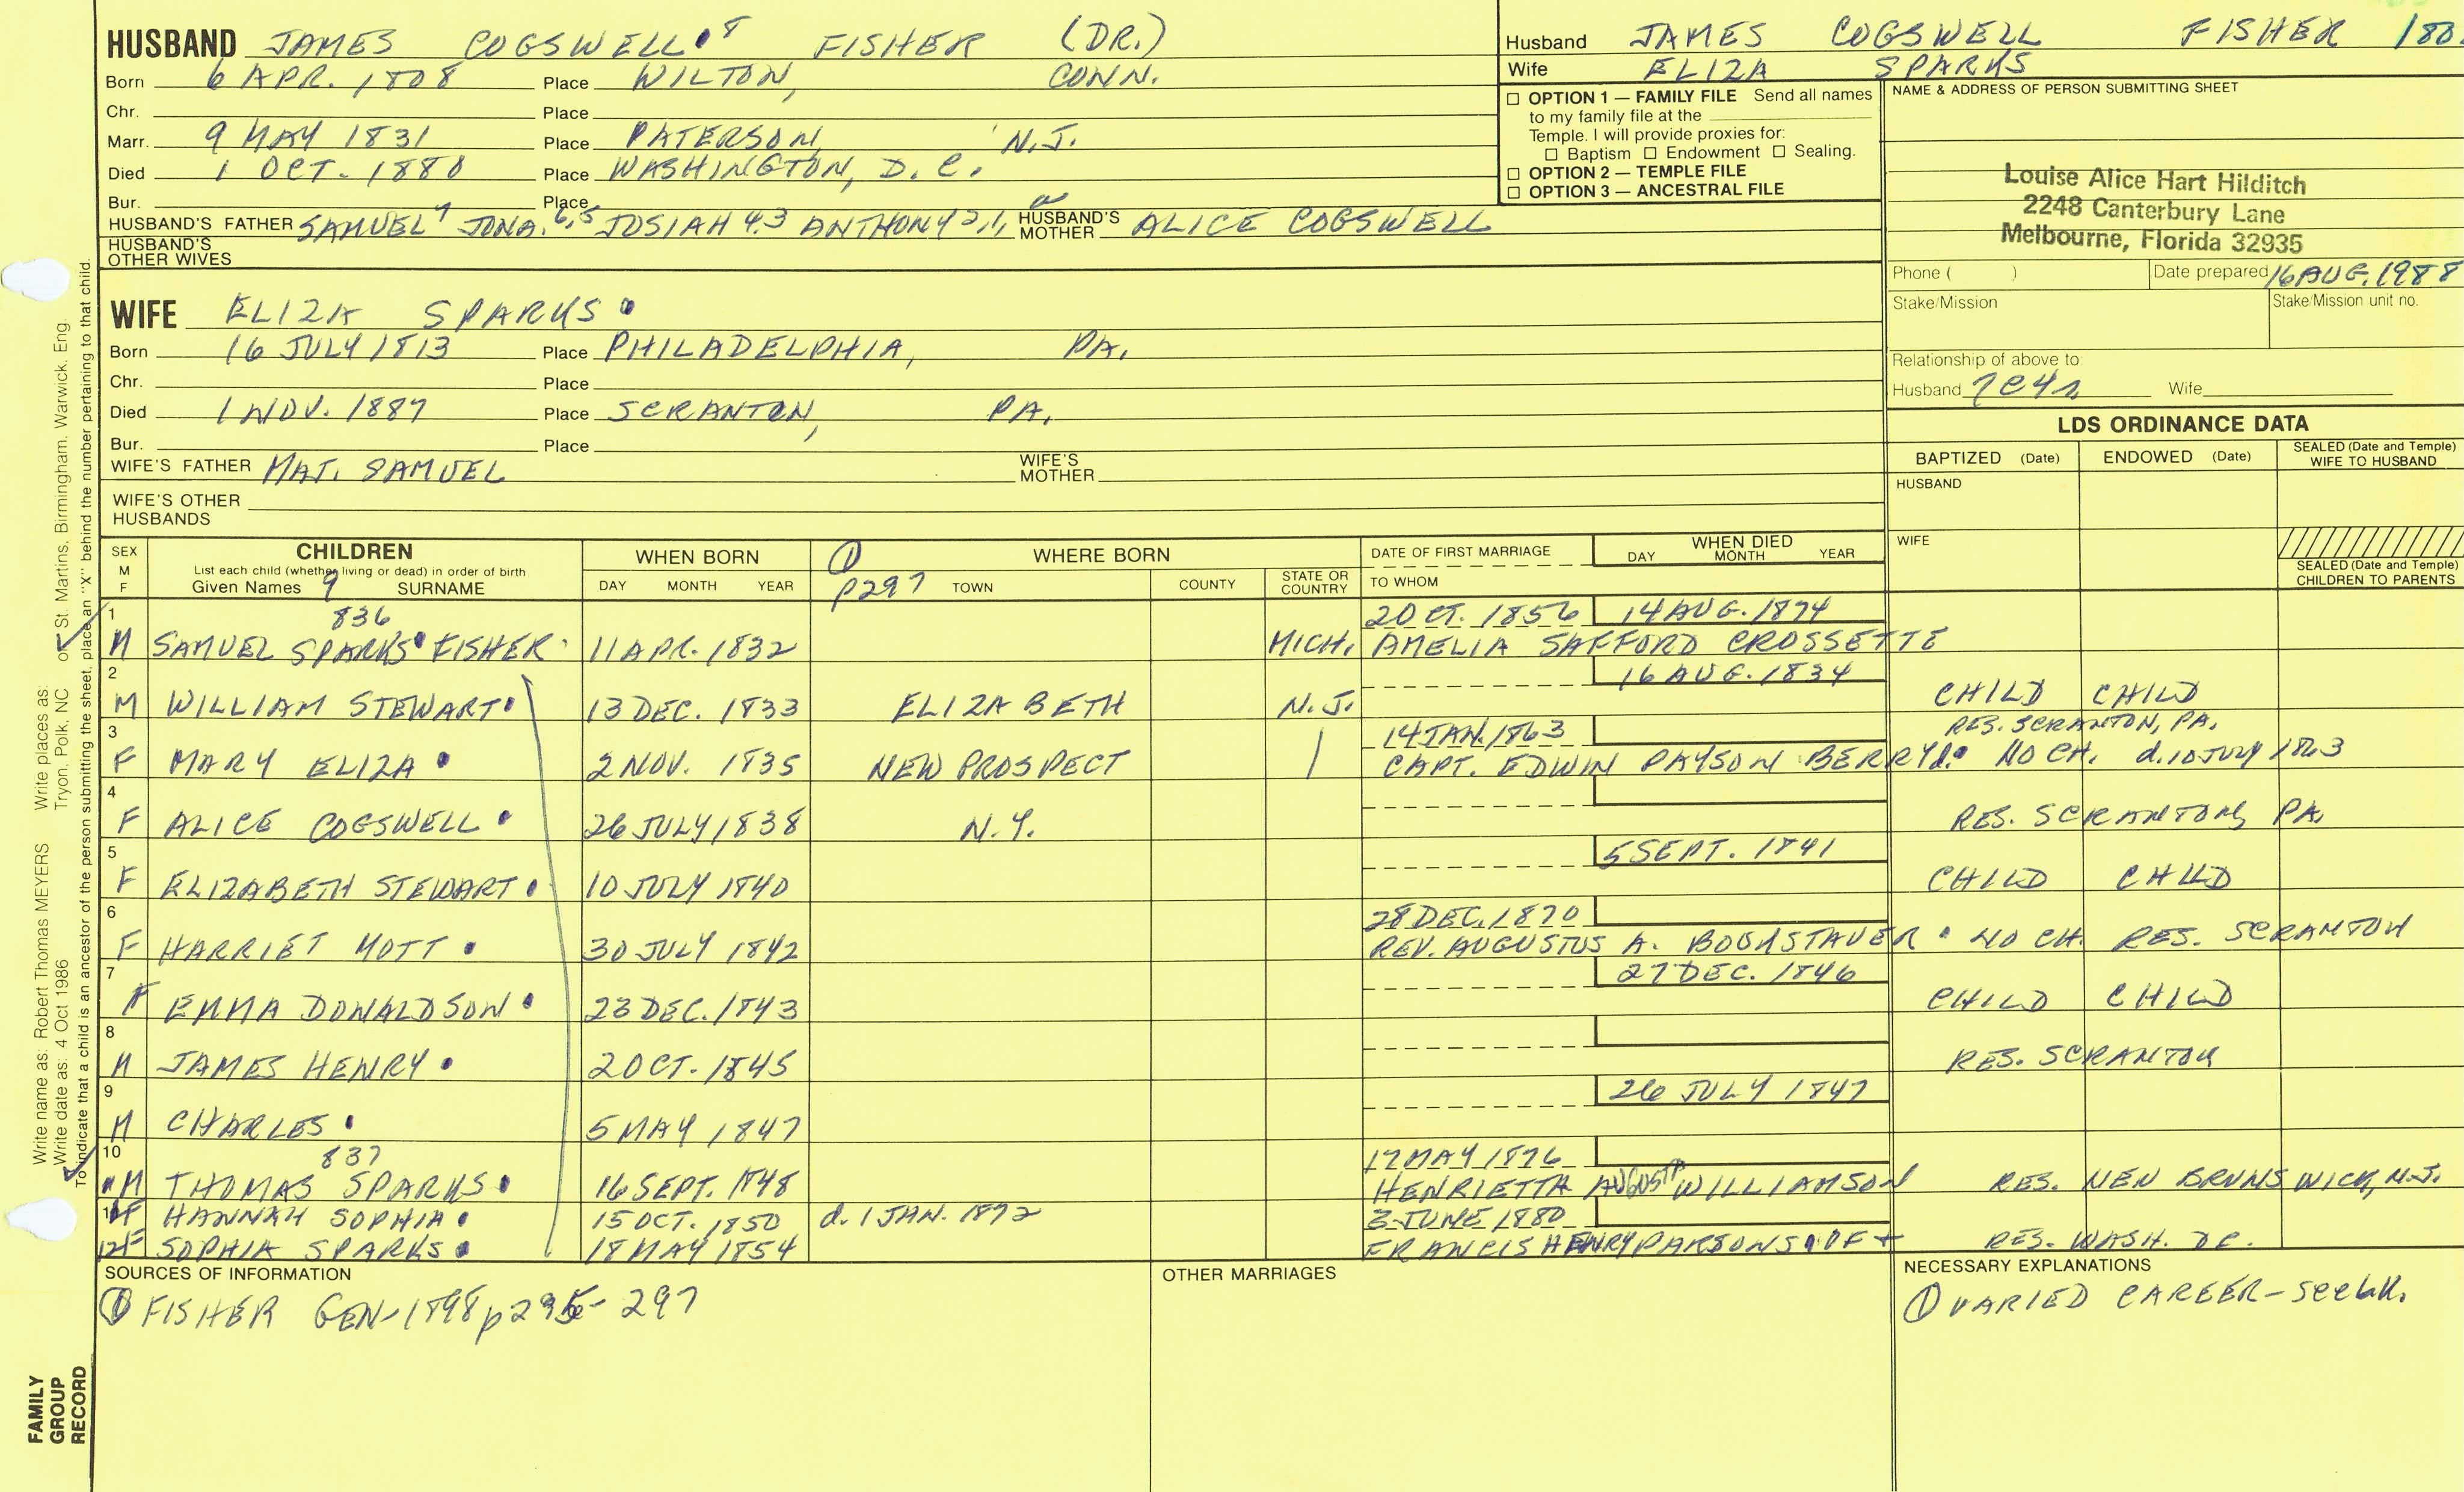 HUSBAND JAMES COGSWELL 8 FISHER (DR.)
Born 6 APR. 1808 Place WILTON, CONN.
Chr. Place
Marr. 9 MAY 1831 Place PATERSON, N.J.
Died 1 OCT. 1880 Place WASHINGTON, D.C.
Bur. Place
HUSBAND'S FATHER SAMUEL 7 JONA. 6,5 JOSIAH 4,3 ANTHONY 2,1, HUSBAND'S MOTHER ALICE COGSWELL
HUSBAND'S OTHER WIVES
Husband JAMES COGSWELL FISHER
Wife ELIZA SPARKS
☐ OPTION 1 — FAMILY FILE Send all names
to my family file at the
Temple. I will provide proxies for:
☐ Baptism ☐ Endowment ☐ Sealing.
☐ OPTION 2 — TEMPLE FILE
☐ OPTION 3 — ANCESTRAL FILE
NAME & ADDRESS OF PERSON SUBMITTING SHEET
Louise Alice Hart Hilditch
2248 Canterbury Lane
Melbourne, Florida 32935
Phone ( ) Date prepared 16 AUG. 1988
Stake/Mission Stake/Mission unit no.
Relationship of above to:
Husband 7C4R Wife
WIFE ELIZA SPARKS
Born 16 JULY 1813 Place PHILADELPHIA, PA.
Chr. Place
Died 1 NOV. 1887 Place SCRANTON, PA.
Bur. Place
WIFE'S FATHER MAJ. SAMUEL WIFE'S MOTHER
WIFE'S OTHER HUSBANDS
LDS ORDINANCE DATA
BAPTIZED (Date) ENDOWED (Date) SEALED (Date and Temple) WIFE TO HUSBAND
HUSBAND
WIFE
SEALED (Date and Temple) CHILDREN TO PARENTS
SEX M F CHILDREN List each child (whether living or dead) in order of birth Given Names 9 SURNAME
WHEN BORN DAY MONTH YEAR
① P297 WHERE BORN TOWN COUNTY STATE OR COUNTRY
DATE OF FIRST MARRIAGE TO WHOM
WHEN DIED DAY MONTH YEAR
1 836 2 OCT. 1856 14 AUG. 1874
M SAMUEL SPARKS FISHER 11 APR. 1832 MICH. AMELIA SAFFORD CROSSETTE
2 16 AUG. 1834
M WILLIAM STEWART 13 DEC. 1833 ELIZABETH N.J. CHILD CHILD
3 14 JAN. 1863 RES. SCRANTON, PA.
F MARY ELIZA 2 NOV. 1835 NEW PROSPECT | CAPT. EDWIN PAYSON BERRY NO CH. d. 10 JULY 1863
4
F ALICE COGSWELL 26 JULY 1838 N.Y. RES. SCRANTON, PA.
5 5 SEPT. 1841
F ELIZABETH STEWART 10 JULY 1840 CHILD CHILD
6 28 DEC. 1870
F HARRIET MOTT 30 JULY 1842 REV. AUGUSTUS A. BOOKSTAVER NO CH. RES. SCRANTON
7 27 DEC. 1846
F EMMA DONALDSON 23 DEC. 1843 CHILD CHILD
8
M JAMES HENRY 2 OCT. 1845 RES. SCRANTON
9 26 JULY 1847
M CHARLES 5 MAY 1847
10 837 17 MAY 1876
M THOMAS SPARKS 16 SEPT. 1848 HENRIETTA AUGUSTA WILLIAMSON RES. NEW BRUNSWICK, N.J.
11 F HANNAH SOPHIA 15 OCT. 1850 d. 1 JAN. 1872 3 JUNE 1880
12 F SOPHIA SPARKS 18 MAY 1854 FRANCIS HENRY PARSONS OF + RES. WASH. DC.
SOURCES OF INFORMATION
① FISHER GEN-1898 p 295- 297
OTHER MARRIAGES
NECESSARY EXPLANATIONS
① VARIED CAREER - see bk.
Write name as: Robert Thomas MEYERS Write places as: Tryon, Polk, NC or St. Martins, Birmingham, Warwick, Eng.
Write date as: 4 Oct 1986
To indicate that a child is an ancestor of the person submitting the sheet, place an "X" behind the number pertaining to that child.
FAMILY GROUP RECORD